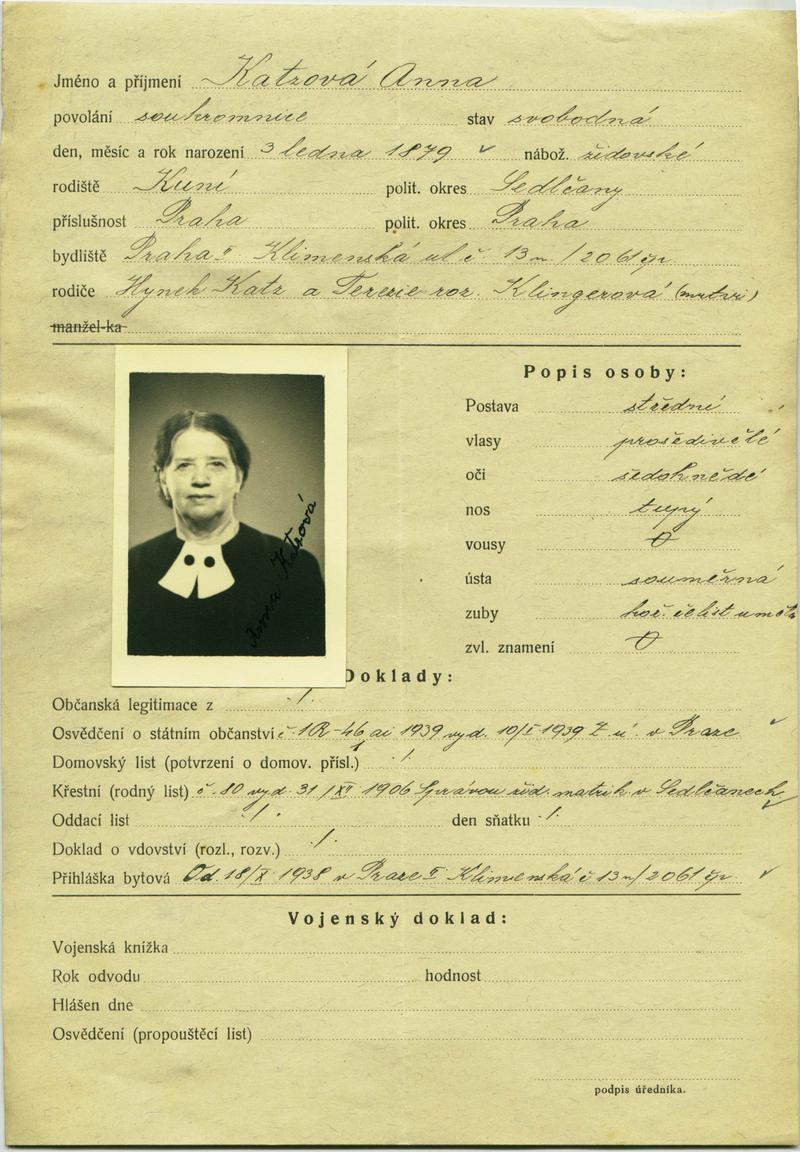 Jméno a příjmení Katzová Anna
povolání soukromnice stav svobodná
den, měsíc a rok narození 3 ledna 1879 nábož. židovské
rodiště Kuní polit. okres Sedlčany
příslušnost Praha polit. okres Praha
bydliště Praha II Klimenská ul č 13n/2061 čp.
rodiče Hynek Katz a Terezie roz. Klingerová (mrtvi)
manžel-ka
Popis osoby:
Postava střední
vlasy prošedivělé
oči šedohnědé
nos tupý
vousy 0
ústa souměrná
zuby hoř. čelist uměl.
zvl. znamení 0
Anna Katzová
Doklady:
Občanská legitimace z /
Osvědčení o státním občanství č 1R-46 ai 1939 vyd. 10/I 1939 Z ú. v Praze
Domovský list (potvrzení o domov. přísl.) /
Křestní (rodný list) č. 80 vyd 31/XII 1906 Správou žid. matrik v Sedlčanech
Oddací list / den sňatku /
Doklad o vdovství (rozl., rozv.) /
Přihláška bytová Od. 18/X 1938 v Praze II Klimenská č 13n/2061 čp.
Vojenský doklad:
Vojenská knížka
Rok odvodu hodnost
Hlášen dne
Osvědčení (propouštěcí list)
podpis úředníka.